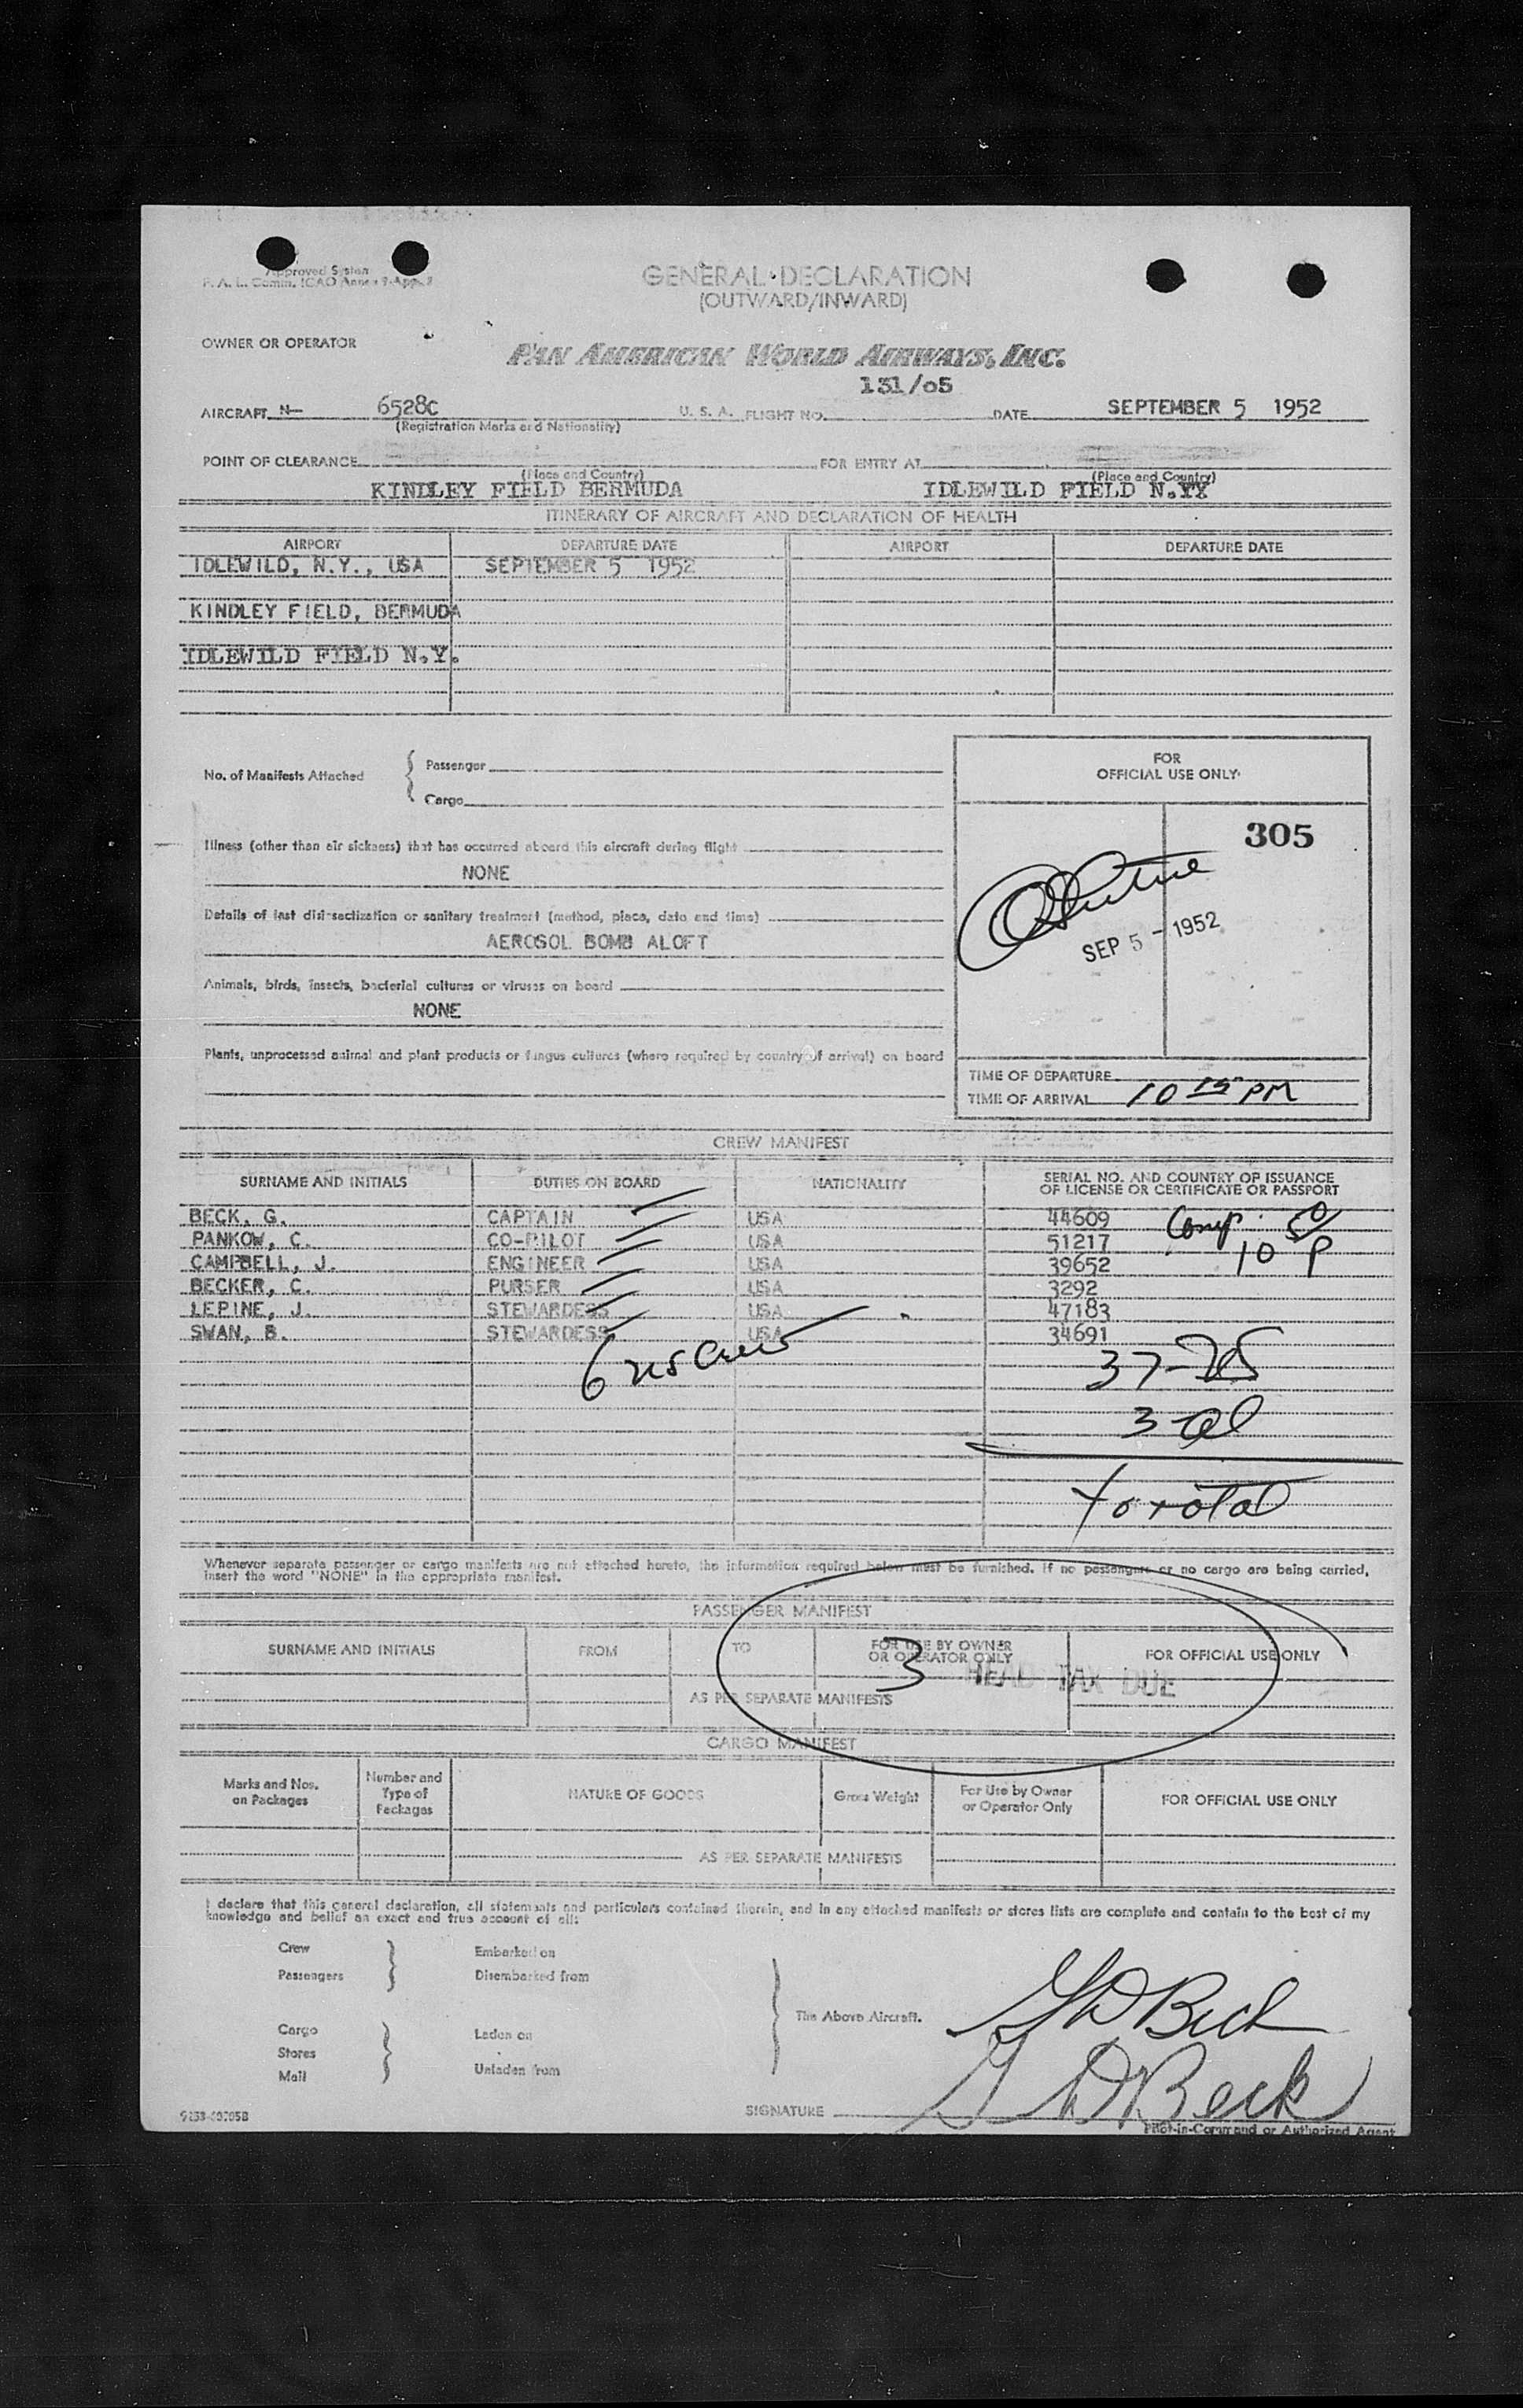 Approved System
F. A. L. Comm. ICAO Annex 9-App. 2
GENERAL DECLARATION
(OUTWARD/INWARD)
OWNER OR OPERATOR
PAN AMERICAN WORLD AIRWAYS, INC.
131/05
AIRCRAFT N- 6528C U. S. A. FLIGHT NO. DATE SEPTEMBER 5 1952
(Registration Marks and Nationality)
POINT OF CLEARANCE FOR ENTRY AT
(Place and Country) (Place and Country)
KINDLEY FIELD BERMUDA IDLEWILD FIELD N.YY
ITINERARY OF AIRCRAFT AND DECLARATION OF HEALTH
AIRPORT DEPARTURE DATE AIRPORT DEPARTURE DATE
IDLEWILD, N.Y., USA SEPTEMBER 5 1952
KINDLEY FIELD, BERMUDA
IDLEWILD FIELD N.Y.
No. of Manifests Attached
Passenger
Cargo
FOR
OFFICIAL USE ONLY
305
SEP 5 - 1952
Illness (other than air sickness) that has occurred aboard this aircraft during flight
NONE
Details of last disinsectization or sanitary treatment (method, place, date and time)
AEROSOL BOMB ALOFT
Animals, birds, insects, bacterial cultures or viruses on board
NONE
Plants, unprocessed animal and plant products or fungus cultures (where required by country of arrival) on board
TIME OF DEPARTURE
TIME OF ARRIVAL 10 15 PM
CREW MANIFEST
SURNAME AND INITIALS DUTIES ON BOARD NATIONALITY SERIAL NO. AND COUNTRY OF ISSUANCE
OF LICENSE OR CERTIFICATE OR PASSPORT
BECK, G. CAPTAIN USA 44609
PANKOW, C. CO-PILOT USA 51217
CAMPBELL, J. ENGINEER USA 39652
10 P
BECKER, C. PURSER USA 3292
LEPINE, J. STEWARDESS USA 47183
SWAN, B. STEWARDESS USA 34691
6 us crew
37-
3-al
total
Whenever separate passenger or cargo manifests are not attached hereto, the information required below must be furnished. If no passengers or no cargo are being carried,
insert the word "NONE" in the appropriate manifest.
PASSENGER MANIFEST
SURNAME AND INITIALS FROM TO FOR USE BY OWNER
OR OPERATOR ONLY FOR OFFICIAL USE ONLY
3 HEAD TAX DUE
AS PER SEPARATE MANIFESTS
CARGO MANIFEST
Marks and Nos.
on Packages
Number and
Type of
Packages
NATURE OF GOODS
Gross Weight
For Use by Owner
or Operator Only
FOR OFFICIAL USE ONLY
AS PER SEPARATE MANIFESTS
I declare that this general declaration, all statements and particulars contained therein, and in any attached manifests or stores lists are complete and contain to the best of my
knowledge and belief an exact and true account of all:
Crew
Passengers
Embarked on
Disembarked from
Cargo
Stores
Mail
Laden on
Unladen from
The Above Aircraft.
G D Beck
G D Beck
SIGNATURE
Pilot-in-Command or Authorized Agent